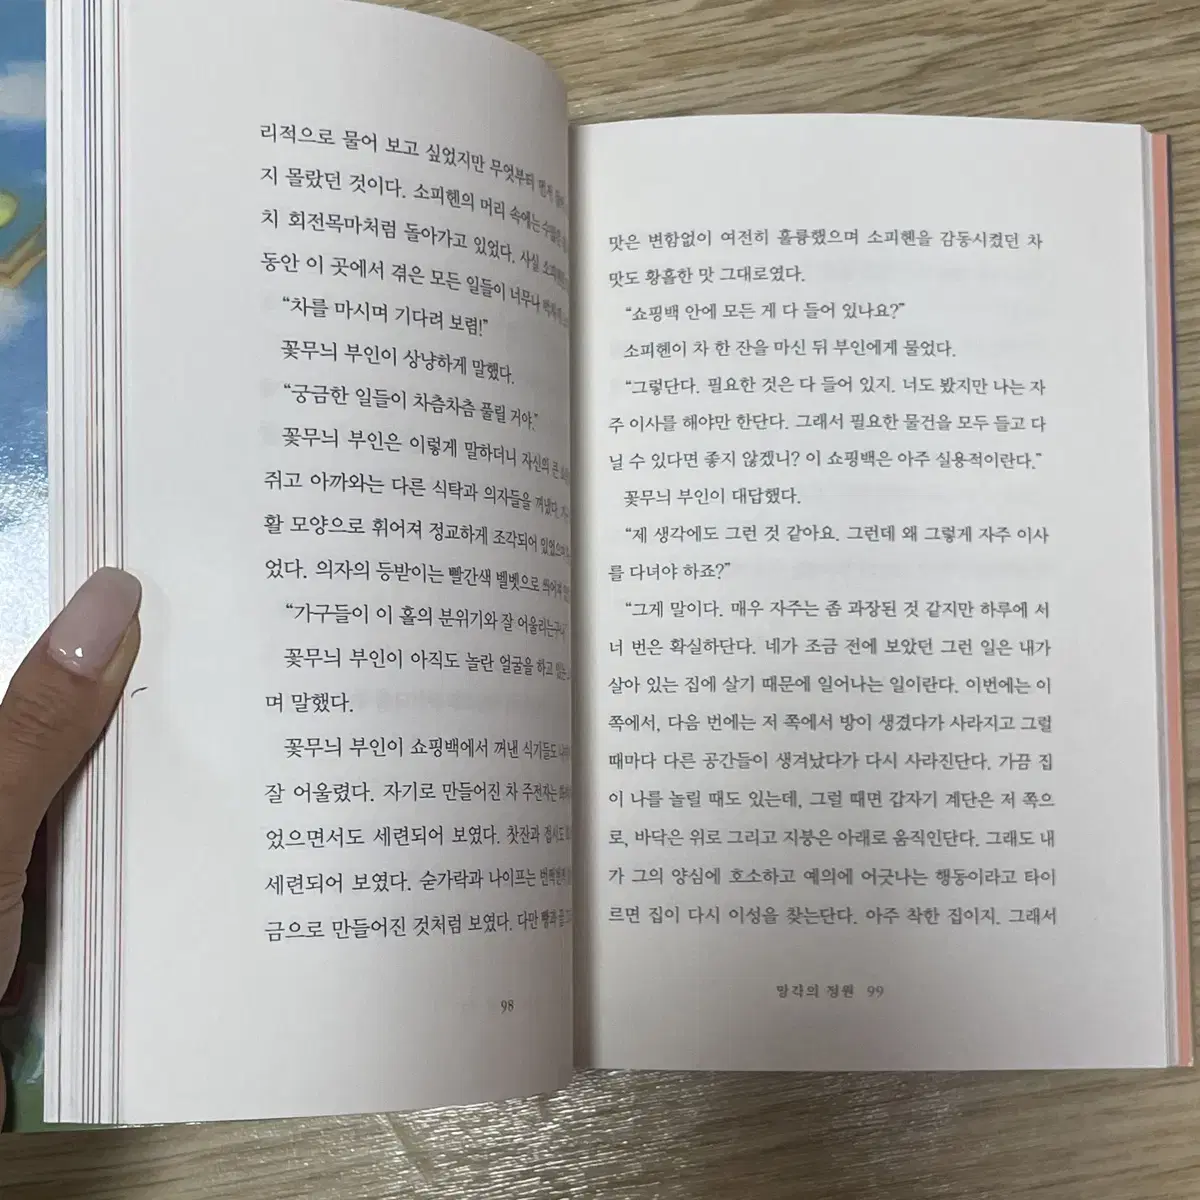 리적으로 물어 보고 싶었지만 무엇부터 먼저
지 몰랐던 것이다. 소피헨의 머리 속에는
치 회전목마처럼 돌아가고 있었다. 사실
동안 이 곳에서 겪은 모든 일들이 너무나
“차를 마시며 기다려 보렴!”
꽃무늬 부인이 상냥하게 말했다.
“궁금한 일들이 차츰차츰 풀릴 거야.”
꽃무늬 부인은 이렇게 말하더니 자신의 큰
쥐고 아까와는 다른 식탁과 의자들을 꺼냈다.
활 모양으로 휘어져 정교하게 조각되어 있었으며
었다. 의자의 등받이는 빨간색 벨벳으로
“가구들이 이 홀의 분위기와 잘 어울리는구나.”
꽃무늬 부인이 아직도 놀란 얼굴을 하고 있는
며 말했다.
꽃무늬 부인이 쇼핑백에서 꺼낸 식기들도
잘 어울렸다. 자기로 만들어진 차 주전자는
었으면서도 세련되어 보였다. 찻잔과 접시도
세련되어 보였다. 숟가락과 나이프는
금으로 만들어진 것처럼 보였다. 다만 빵과
98
맛은 변함없이 여전히 훌륭했으며 소피헨을 감동시켰던 차
맛도 황홀한 맛 그대로였다.
“쇼핑백 안에 모든 게 다 들어 있나요?”
소피헨이 차 한 잔을 마신 뒤 부인에게 물었다.
“그렇단다. 필요한 것은 다 들어 있지. 너도 봤지만 나는 자
주 이사를 해야만 한단다. 그래서 필요한 물건을 모두 들고 다
닐 수 있다면 좋지 않겠니? 이 쇼핑백은 아주 실용적이란다.”
꽃무늬 부인이 대답했다.
“제 생각에도 그런 것 같아요. 그런데 왜 그렇게 자주 이사
를 다녀야 하죠?”
“그게 말이다. 매우 자주는 좀 과장된 것 같지만 하루에 서
너 번은 확실하단다. 네가 조금 전에 보았던 그런 일은 내가
살아 있는 집에 살기 때문에 일어나는 일이란다. 이번에는 이
쪽에서, 다음 번에는 저 쪽에서 방이 생겼다가 사라지고 그럴
때마다 다른 공간들이 생겨났다가 다시 사라진단다. 가끔 집
이 나를 놀릴 때도 있는데, 그럴 때면 갑자기 계단은 저 쪽으
로, 바닥은 위로 그리고 지붕은 아래로 움직인단다. 그래도 내
가 그의 양심에 호소하고 예의에 어긋나는 행동이라고 타이
르면 집이 다시 이성을 찾는단다. 아주 착한 집이지. 그래서
망각의 정원 99